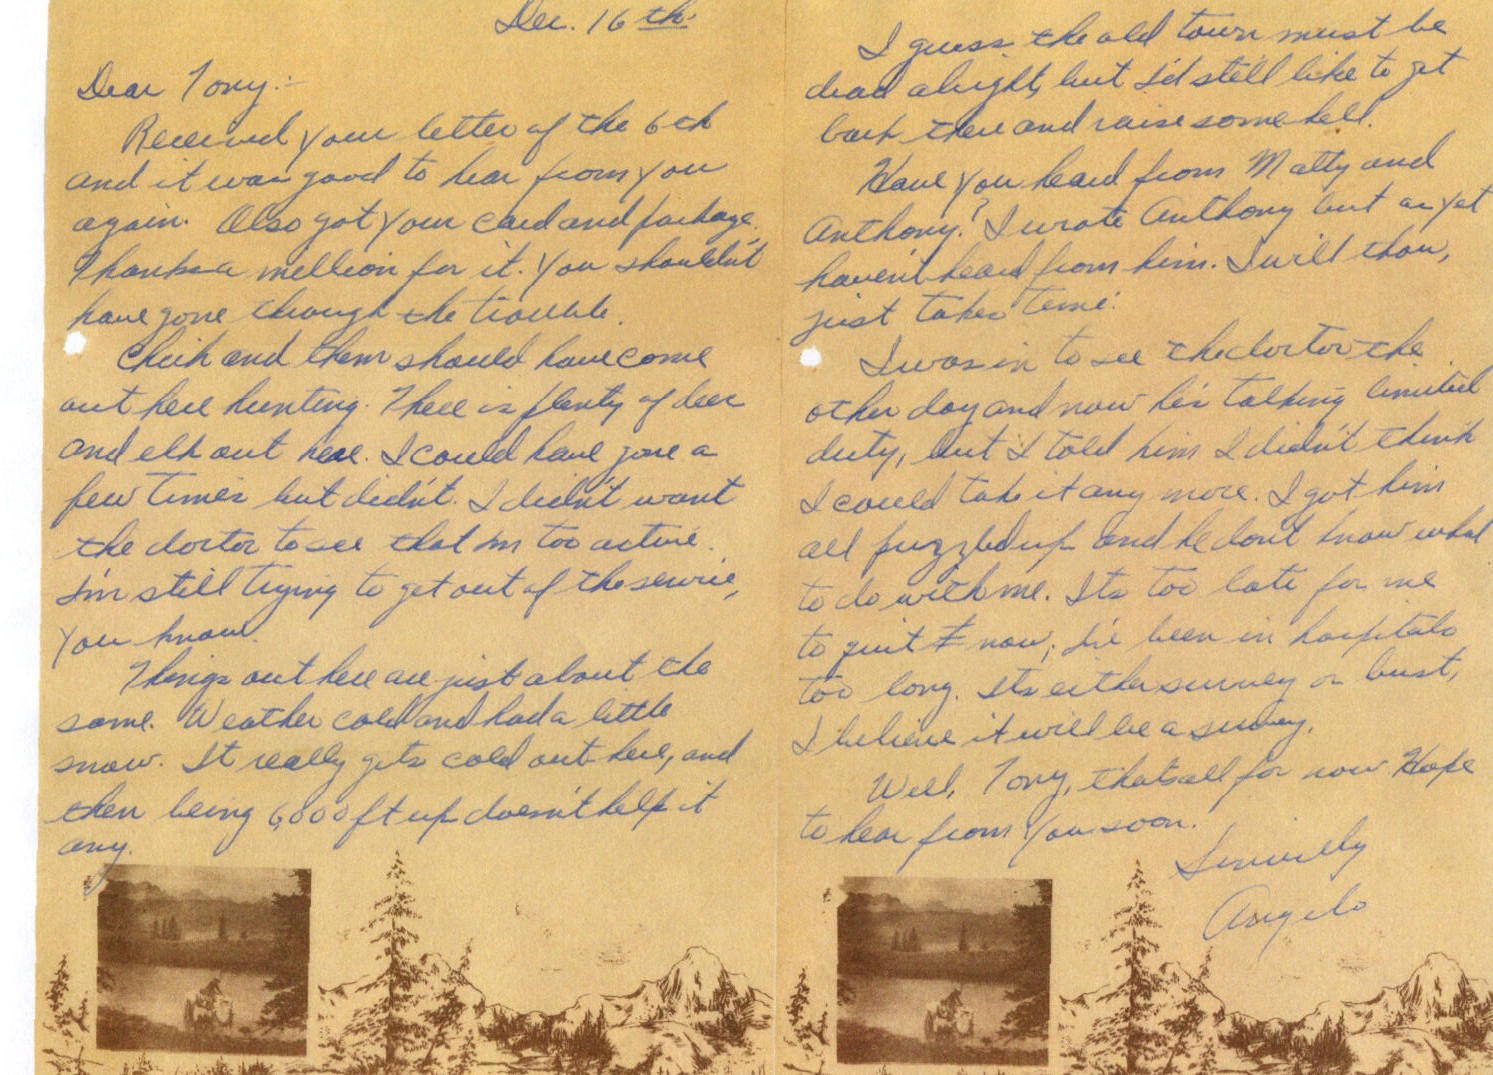 Dec. 16th.
Dear Tony:-
Received your letter of the 6th
and it was good to hear from you
again. Also got your card and package.
Thanks a million for it. You shouldn't
have gone through the trouble.
Chick and them should have come
out here hunting. There is plenty of deer
and elk out here. I could have gone a
few times but didn't. I didn't want
the doctor to see that Im too active.
I'm still trying to get out of the service,
you know.
Things out here are just about the
same. Weather cold and had a little
snow. It really gets cold out here, and
then being 6,000 ft up doesn't help it
any.
I guess the old town must be
dead alright, but I'd still like to get
back there and raise some hell.
Have you heard from Matty and
Anthony? I wrote Anthony but as yet
haven't heard from him. I will thou,
just takes time.
I was in to see the doctor the
other day and now he's talking limited
duty, but I told him I didn't think
I could take it any more. I got him
all puzzled up and he don't know what
to do with me. Its too late for me
to quit now, I've been in hospitals
too long. Its either survey or bust,
I believe it will be a survey.
Well, Tony, thats all for now. Hope
to hear from you soon.
Sincerely
Angelo